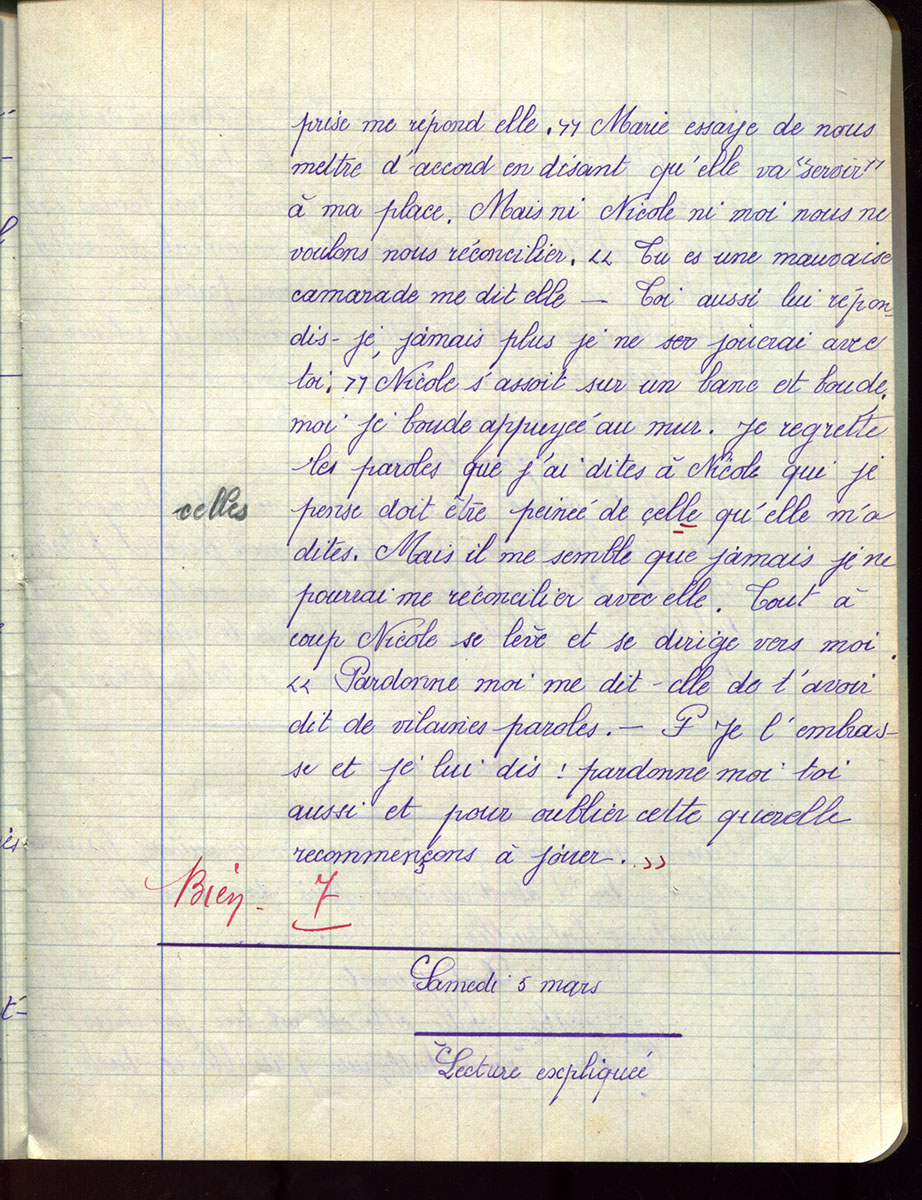 prise me répond elle. » Marie essaye de nous
mettre d'accord en disant qu'elle va "servir"
à ma place. Mais ni Nicole ni moi nous ne
voulons nous réconcilier. « Tu es une mauvaise
camarade me dit elle — Toi aussi lui répon-
dis-je, jamais plus je ne jouerai avec
toi. » Nicole s'assoit sur un banc et boude,
moi je boude appuyée au mur. Je regrette
les paroles que j'ai dites à Nicole qui je
celles pense doit être peinée de celle qu'elle m'a
dites. Mais il me semble que jamais je ne
pourrai me réconcilier avec elle. Tout à
coup Nicole se lève et se dirige vers moi.
« Pardonne moi me dit-elle de t'avoir
dit de vilaines paroles. — P Je l'embras-
se et je lui dis : pardonne moi toi
aussi et pour oublier cette querelle
recommençons à jouer. »
Bien - 7
Samedi 5 mars
Lecture expliquée